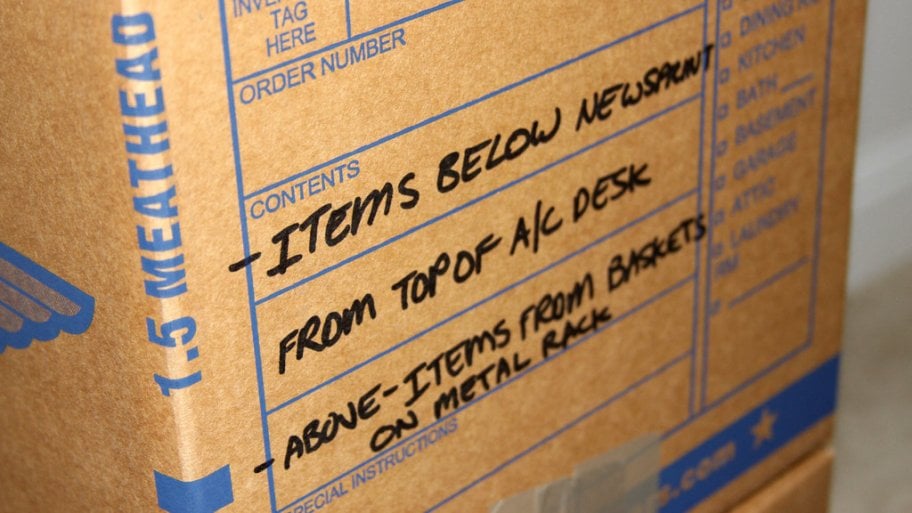 INVE
TAG
HERE
ORDER NUMBER
CONTENTS
-ITEMS BELOW NEWSPRINT
FROM TOP OF A/C DESK
-ABOVE-ITEMS FROM BASKETS
ON METAL RACK
SPECIAL INSTRUCTIONS
1.5 MEATHEAD
DINING R
KITCHEN
BATH
BASEMENT
GARAGE
ATTIC
LAUNDRY
RM
.com